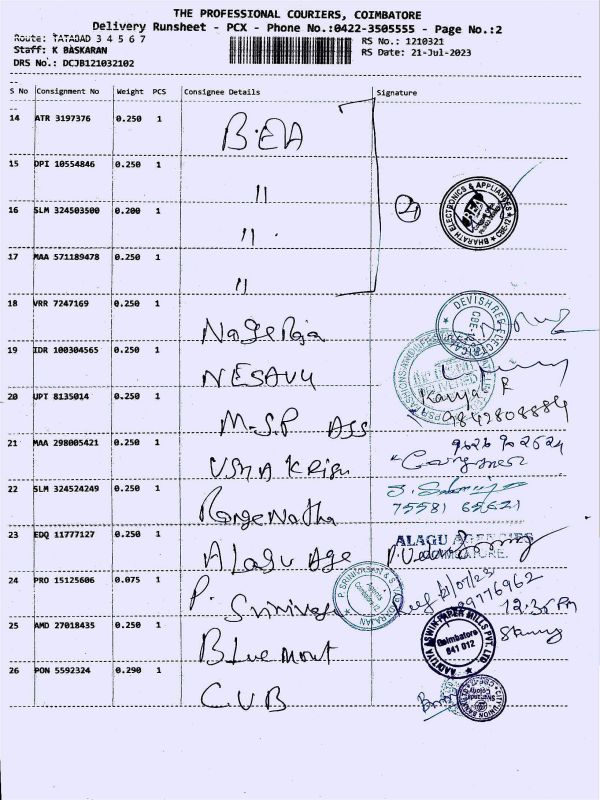 THE PROFESSIONAL COURIERS, COIMBATORE
Delivery Runsheet - PCX - Phone No.:0422-3505555 - Page No.:2
Route: TATABAD 3 4 5 6 7
RS No.: 1210321
Staff: K BASKARAN
RS Date: 21-Jul-2023
DRS No.: DCJB121032102
S No Consignment No Weight PCS Consignee Details Signature
14 ATR 3197376 0.250 1 B.EA
15 DPI 10554846 0.250 1 "
16 SLM 324503500 0.200 1 "
BHARATH ELECTRONICS & APPLIANCES CBE-12 BEA
17 MAA 571189478 0.250 1 "
18 VRR 7247169 0.250 1 Nageraja
DEVISHREE ELECTRICALS CBE-12
19 IDR 100304565 0.250 1 NESAVU
20 UPT 8135014 0.250 1 M.S.P Ass
Karya R
9842808884
21 MAA 298005421 0.250 1 USHA Krish
22 SLM 324524249 0.250 1 RangeNatha
75581 65621
23 EDQ 11777127 0.250 1 ALagu Age
ALAGU AGENCIES
COIMBATORE.
24 PRO 15125606 0.075 1 P. Srinivas
12:35 PM
25 AMD 27018435 0.250 1 BLue mout
AADITYA ASWIN PAPER MILLS PVT. LTD. Coimbatore 641 012
26 PON 5592324 0.290 1 C.U.B
CITY UNION BANK